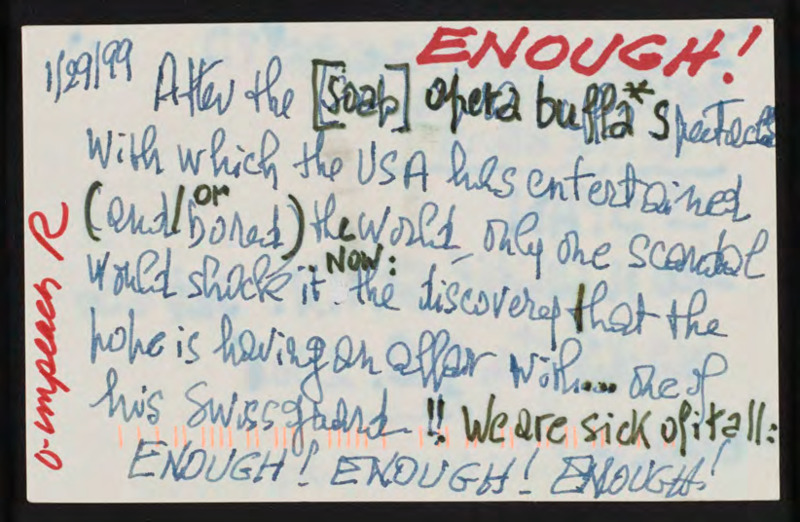 ENOUGH!
1/29/99
After the [soap] opera buffa* spectacles
with which the USA has entertained
(and/or bored) the world, only one scandal
would shock it NOW: the discovery that the
pope is having an affair with... one of
his Swissguard !! We are sick of it all:
ENOUGH! ENOUGH! ENOUGH!
0-impeach R